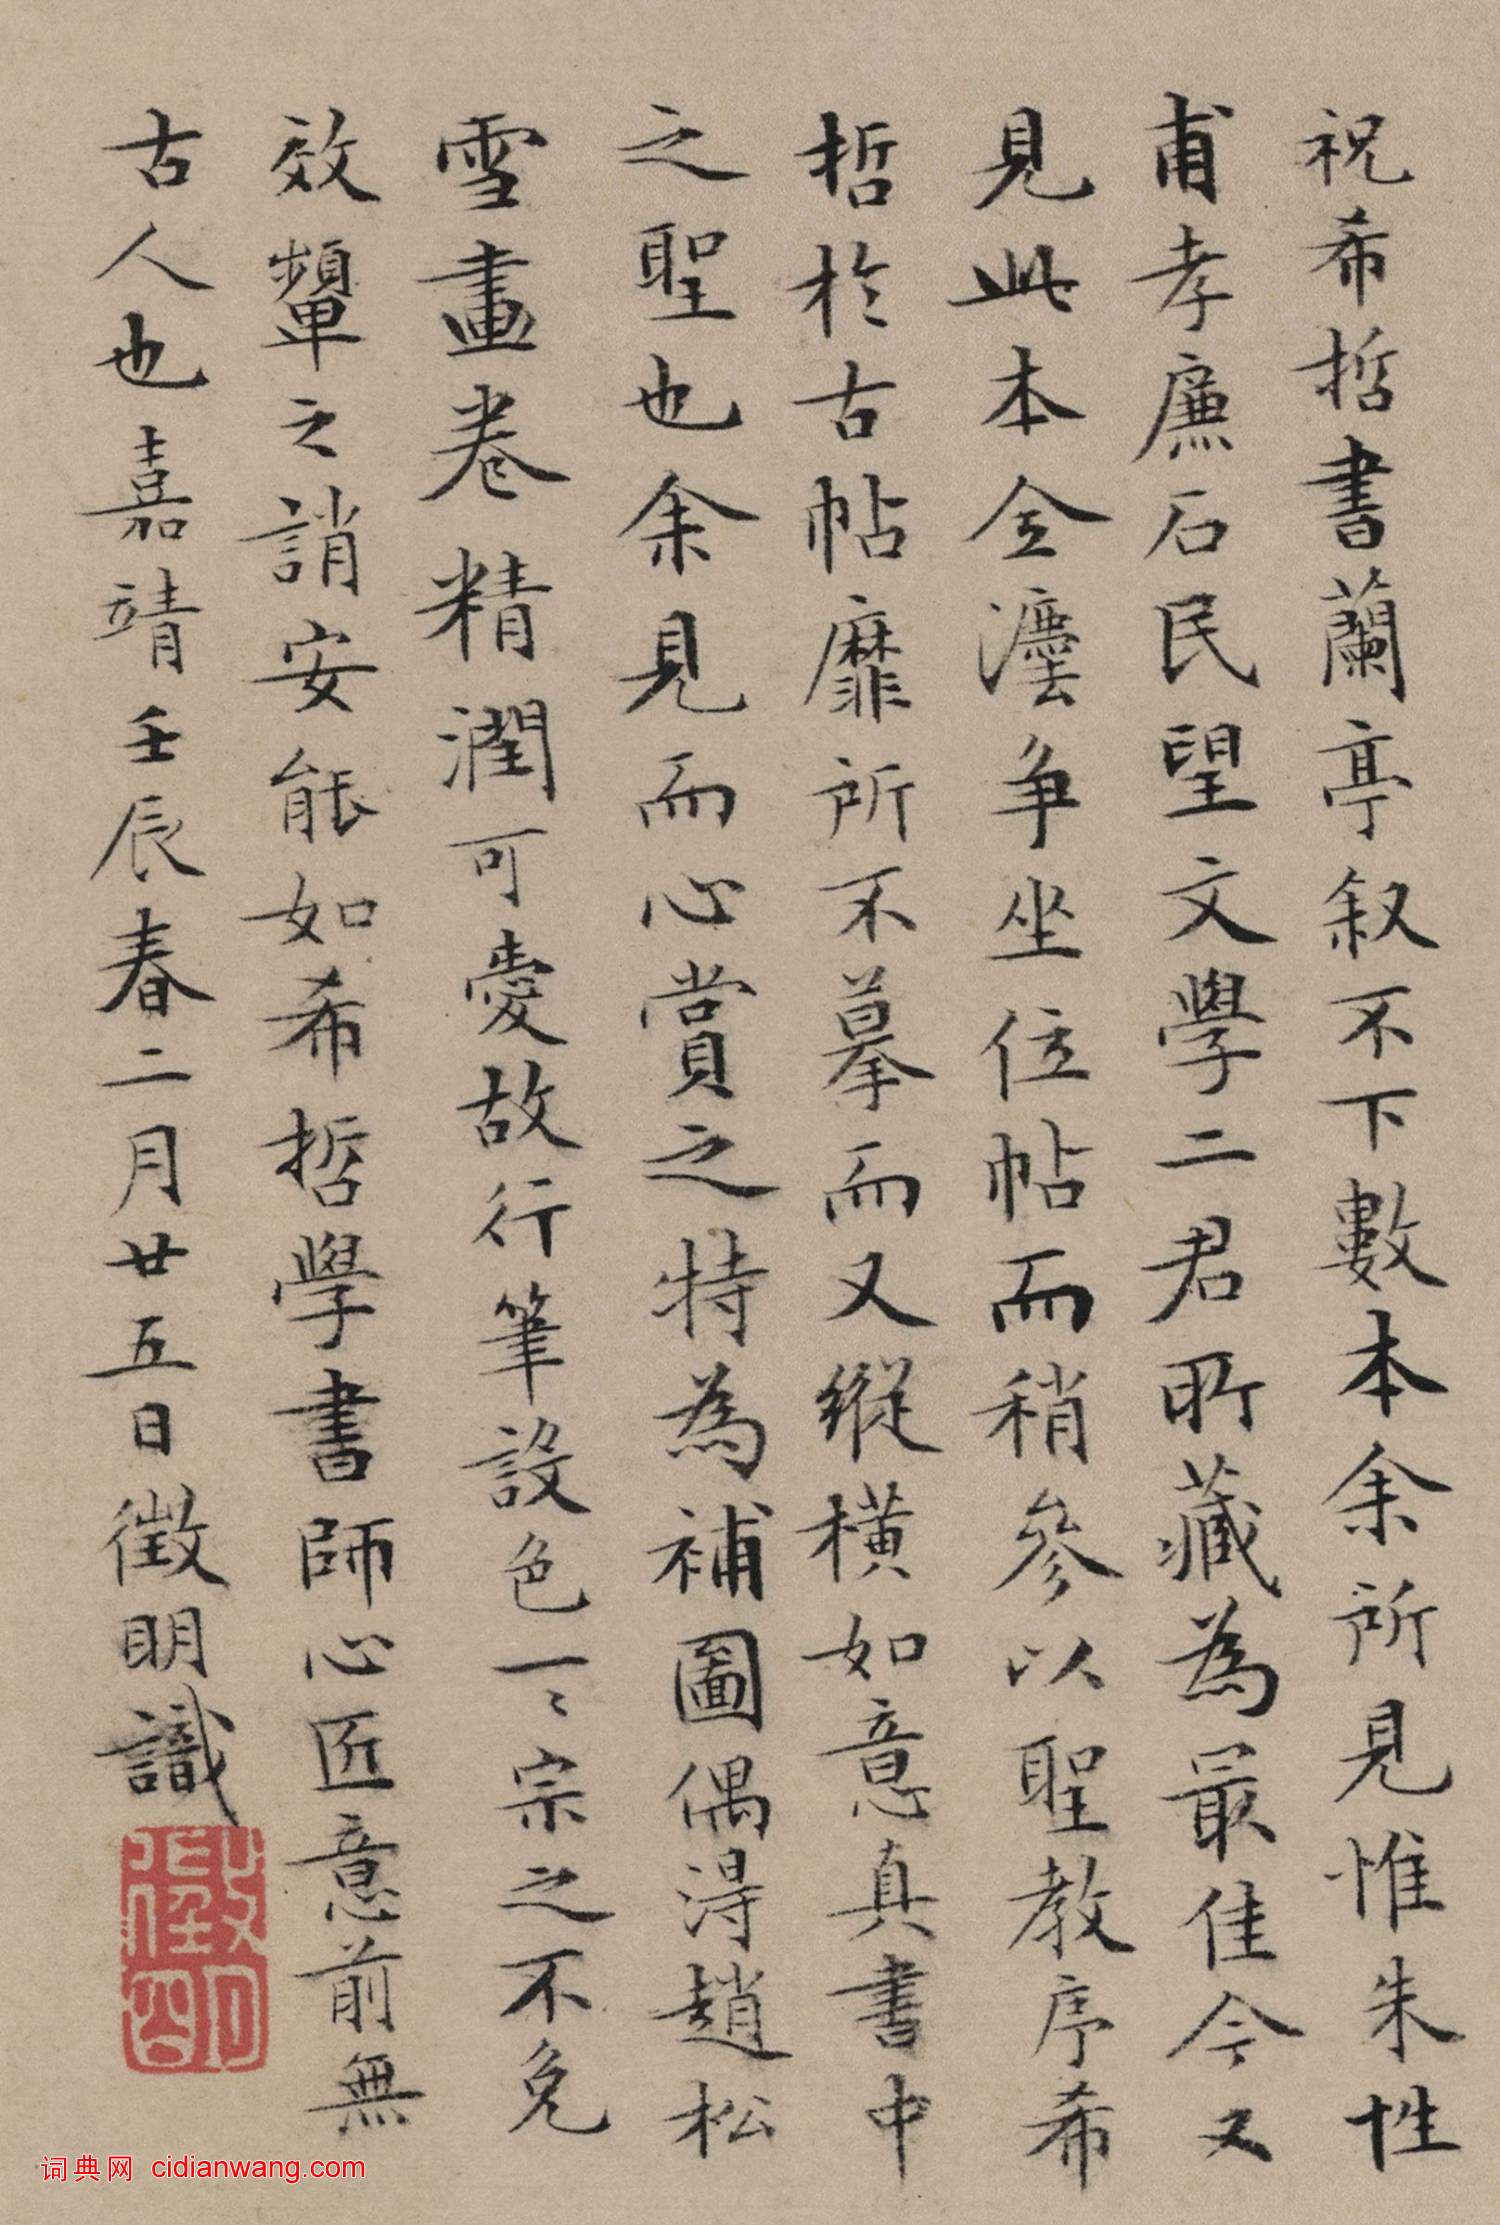 祝希哲書蘭亭叙不下數本余所見惟朱性
甫孝廉石民望文學二君所藏為最佳今又
見此本全灋争坐位帖而稍參以聖教序希
哲於古帖靡所不摹而又縱橫如意真書中
之聖也余見而心賞之特為補圖偶得趙松
雪畫卷精潤可愛故行筆設色一〻宗之不免
效顰之誚安能如希哲學書師心匠意前無
古人也嘉靖壬辰春二月廿五日徵明識
徵明
词典网 cidianwang.com